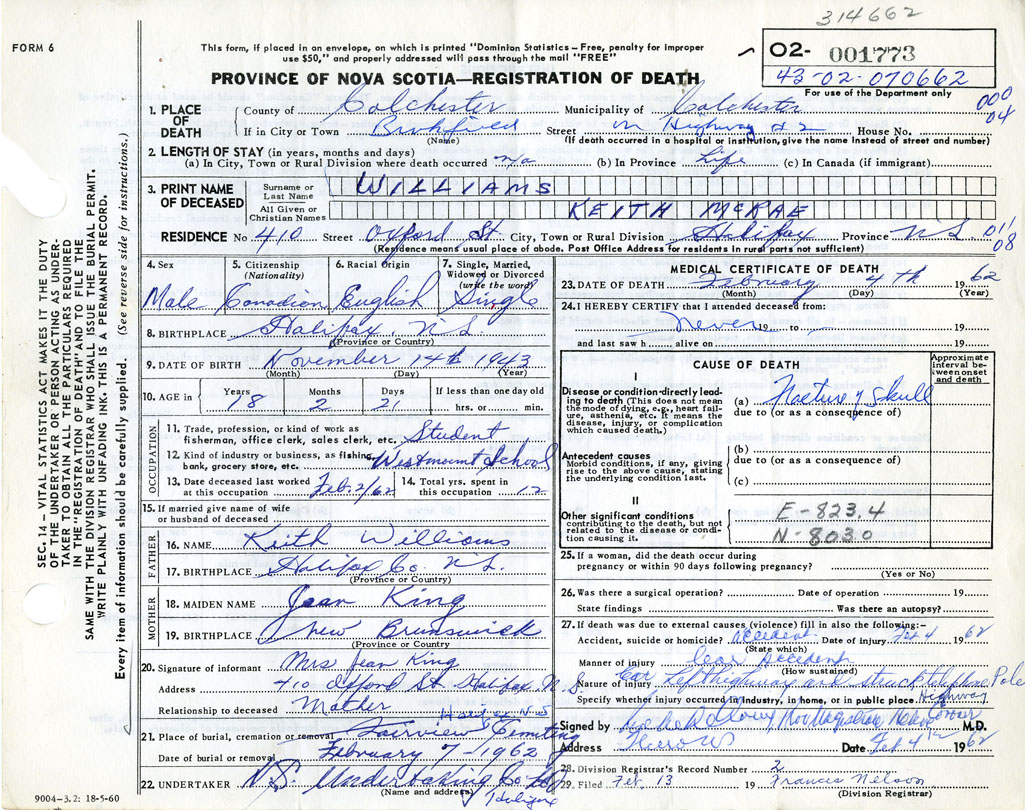 314662
FORM 6
This form, if placed in an envelope, on which is printed "Dominion Statistics – Free, penalty for improper
use $50," and properly addressed will pass through the mail "FREE"
O2- 001773
43-02-070662
For use of the Department only
PROVINCE OF NOVA SCOTIA—REGISTRATION OF DEATH
000
04
SEC. 14 – VITAL STATISTICS ACT MAKES IT THE DUTY
OF THE UNDERTAKER OR PERSON ACTING AS UNDER-
TAKER TO OBTAIN ALL THE PARTICULARS REQUIRED
IN THE "REGISTRATION OF DEATH" AND TO FILE THE
SAME WITH THE DIVISION REGISTRAR WHO SHALL ISSUE THE BURIAL PERMIT.
WRITE PLAINLY WITH UNFADING INK. THIS IS A PERMANENT RECORD.
Every item of information should be carefully supplied. (See reverse side for instructions.)
1. PLACE OF DEATH
County of Colchester Municipality of Colchester
If in City or Town Brookfield Street on Highway # 2 House No.
(Name) (If death occurred in a hospital or institution, give the name instead of street and number)
2. LENGTH OF STAY (in years, months and days)
(a) In City, Town or Rural Division where death occurred n/a (b) In Province Life (c) In Canada (if immigrant)
3. PRINT NAME OF DECEASED
Surname or Last Name WILLIAMS
All Given or Christian Names KEITH McRAE
RESIDENCE No. 410 Street Oxford St. City, Town or Rural Division Halifax Province N.S. 01/
08
(Residence means usual place of abode. Post Office Address for residents in rural parts not sufficient)
4. Sex Male
5. Citizenship (Nationality) Canadian
6. Racial Origin English
7. Single, Married, Widowed or Divorced (write the word) Single
8. BIRTHPLACE Halifax, N.S.
(Province or Country)
9. DATE OF BIRTH November 14th 1943
(Month) (Day) (Year)
10. AGE in Years 18 Months 2 Days 21 If less than one day old hrs. or min.
OCCUPATION
11. Trade, profession, or kind of work as
fisherman, office clerk, sales clerk, etc. Student
12. Kind of industry or business, as fishing,
bank, grocery store, etc. Westmount School
13. Date deceased last worked
at this occupation Feb 2/62
14. Total yrs. spent in
this occupation 12
15. If married give name of wife
or husband of deceased
FATHER
16. NAME Keith Williams
17. BIRTHPLACE Halifax Co. N.S.
(Province or Country)
MOTHER
18. MAIDEN NAME Jean King
19. BIRTHPLACE New Brunswick
(Province or Country)
20. Signature of informant Mrs Jean King
Address 410 Oxford St. Halifax N.S
Relationship to deceased Mother
Halifax N.S
21. Place of burial, cremation or removal Fairview Cemetery
Date of burial or removal February 7-1962
22. UNDERTAKER N.S. Undertaking Co Ltd
(Name and address) Halifax
9004-3.2: 18-5-60
MEDICAL CERTIFICATE OF DEATH
23. DATE OF DEATH February 4th 1962
(Month) (Day) (Year)
24. I HEREBY CERTIFY that I attended deceased from:
Never 19 to 19
and last saw h alive on 19
CAUSE OF DEATH
Approximate interval between onset and death
I
Disease or condition directly lead-
ing to death (This does not mean
the mode of dying, e.g., heart fail-
ure, asthenia, etc. It means the
disease, injury, or complication
which caused death.)
(a) Fracture of Skull
due to (or as a consequence of)
Antecedent causes
Morbid conditions, if any, giving
rise to the above cause, stating
the underlying condition last.
(b)
due to (or as a consequence of)
(c)
II
Other significant conditions
contributing to the death, but not
related to the disease or condi-
tion causing it.
E-823.4
N-803.0
25. If a woman, did the death occur during
pregnancy or within 90 days following pregnancy?
(Yes or No)
26. Was there a surgical operation? Date of operation 19
State findings Was there an autopsy?
27. If death was due to external causes (violence) fill in also the following:–
Accident, suicide or homicide? accident Date of injury Feb 4 1962
(State which)
Manner of injury Car Accident
(How sustained)
Nature of injury Car Left highway and struck telephone Pole
Specify whether injury occurred in industry, in home, or in public place. Highway
Signed by Coroner M.D.
Address Date Feb 4th 1962
28. Division Registrar's Record Number 2
29. Filed Feb 13 19 Francis Nelson
(Division Registrar)